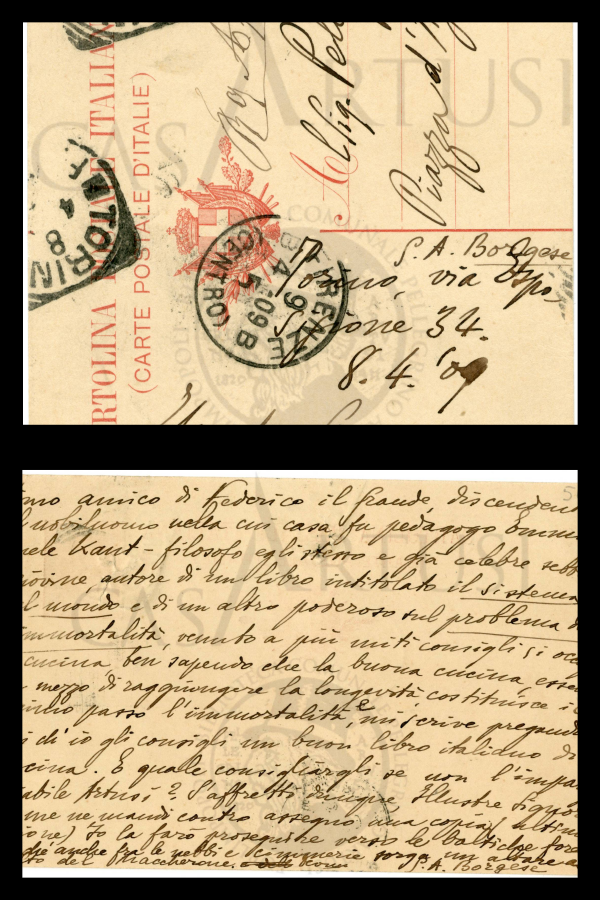 CASA ARTUSI
Rg Ar
Alsig. Pell
Piazza d'A
CARTOLINA POSTALE ITALIANA
(CARTE POSTALE D'ITALIE)
TORIN
4
8
FIRENZE
9
4 5 09 B
(CENTRO)
G. A. Borgese
Torino, via Ospe
34.
8. 4. '09
imo amico di Federico il Grande, discenden
l nobiluomo nella cui casa fu pedagogo Emma
nele Kant - filosofo egli stesso e già celebre seb
iovine, autore di un libro intitolato il sistema
l mondo e di un altro poderoso sul problema d
immortalità, venuto a più miti consigli, si occ
cucina ben sapendo che la buona cucina, esse
mezzo di raggiungere la longevità, costituisce i
imo passo l'immortalità, e mi scrive pregando
ch'io gli consigli un buon libro italiano di
cina. E quale consigliargli se non l'impa
abile Artusi? S'affretti dunque, Illustre Signo
me ne mandi contro assegno una copia (ultim
ione) Io la farò proseguire verso le baltiche fore
ché anche fra le nebbie cimmerie sorga un altare a
to del Maccherone.
G. A. Borgese